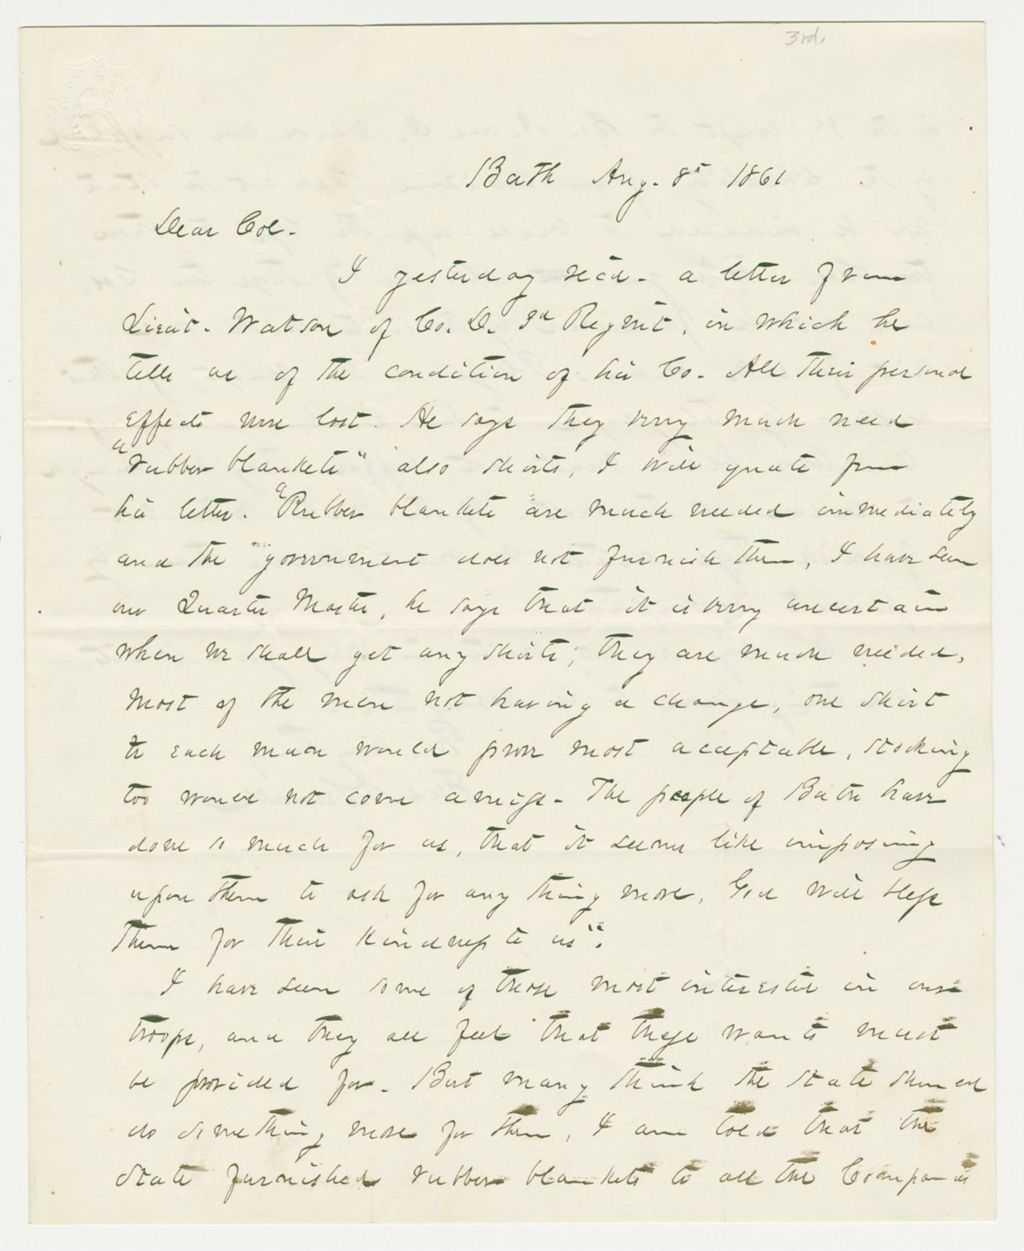 3rd.
Bath Aug. 8th 1861
Dear Col.
I yesterday rec'd. a letter from
Lieut. Watson of Co. D. 3d Regmt, in which he
tells us of the condition of his Co. All their personal
effects were lost. He says they very much need
"rubber blankets" also shirts, I will quote from
his letter. "Rubber blankets are much needed immediately
and the government does not furnish them, I have seen
our Quarter Master, he says that it is very uncertain
when we shall get any shirts; they are much needed,
most of the men not having a change, one shirt
to each man would prove most acceptable, stockings
too would not come amiss. The people of Bath have
done so much for us, that it seems like imposing
upon them to ask for any thing more. God will bless
them for their kindness to us".
I have seen some of those most interested in our
troops, and they all feel that these wants must
be provided for. But many think the State should
do something more for them, I am told that the
State furnished rubber blankets to all the Companies